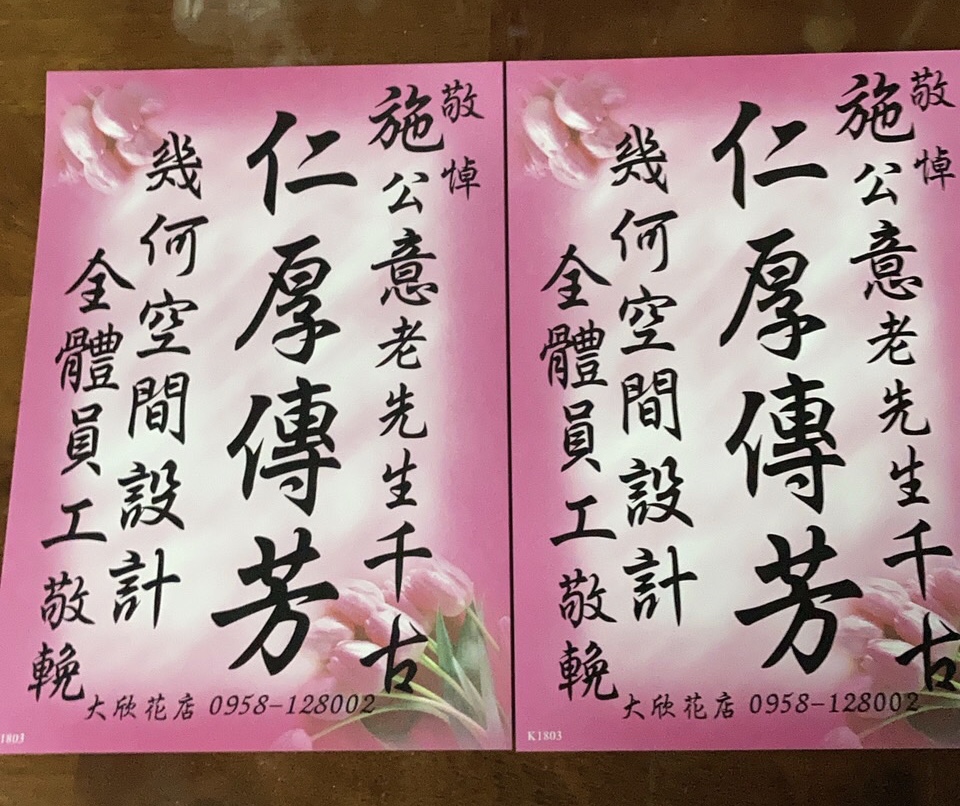 敬悼
施公意老先生千古
仁厚傳芳
幾何空間設計
全體員工敬輓
大欣花店 0958-128002
1803
敬悼
施公意老先生千古
仁厚傳芳
幾何空間設計
全體員工敬輓
大欣花店 0958-128002
K1803